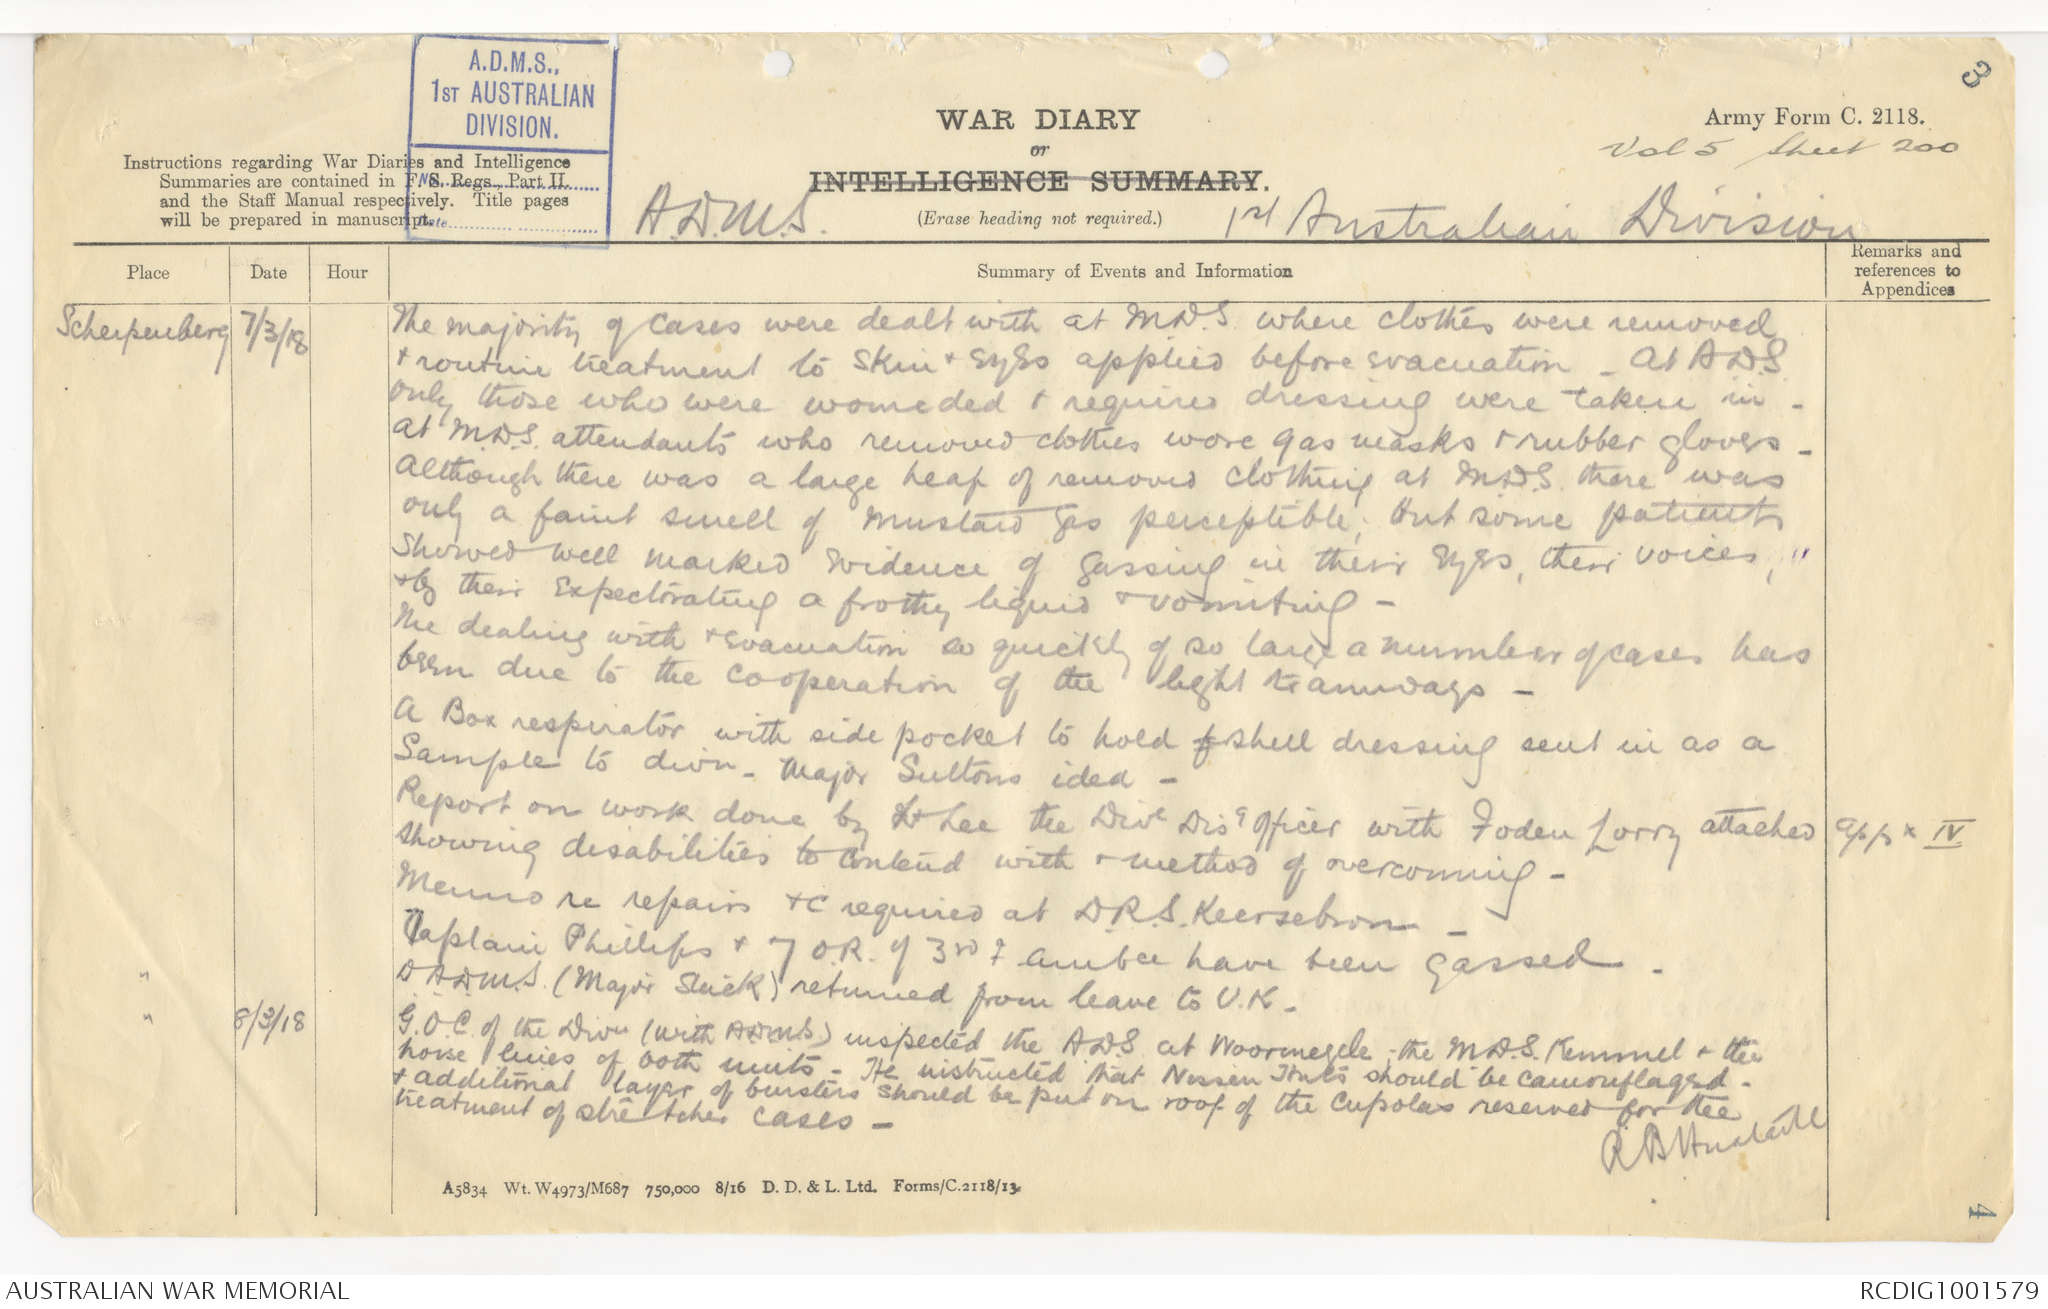 3
A.D.M.S.,
1ST AUSTRALIAN
DIVISION.
No.
Date
WAR DIARY
or
INTELLIGENCE SUMMARY.
(Erase heading not required.)
Army Form C. 2118.
Vol 5 Sheet 200
Instructions regarding War Diaries and Intelligence
Summaries are contained in F. S. Regs., Part II.
and the Staff Manual respectively. Title pages
will be prepared in manuscript.
A.D.M.S. 1st Australian Division
Place Date Hour Summary of Events and Information Remarks and references to Appendices
Scherpenberg 7/3/18 The majority of cases were dealt with at M.D.S. where clothes were removed
+ routine treatment to skin + eyes applied before evacuation - At A.D.S.
only those who were wounded + required dressing were taken in -
At M.D.S. attendants who removed clothes wore gas masks + rubber gloves -
Although there was a large heap of removed clothing at M.D.S. there was
only a faint smell of mustard gas perceptible; but some patients
showed well marked evidence of gassing in their eyes, their voices,
+ by their expectorating a frothy liquid + vomiting -
The dealing with + evacuation so quickly of so large a number of cases has
been due to the cooperation of the light tramways -
A Box respirator with side pocket to hold shell dressing sent in as a
sample to divn - Major Suttons idea -
Report on work done by Lt Lee the Dive Disg Officer with Foden Lorry attached appx IV.
showing disabilities to contend with + method of overcoming -
Memo re repairs +c required at D.R.S. Keersebrom -
Captain Phillips + 7 O.R. of 3rd F Ambce have been gassed -
" D.A.D.M.S. (Major Stuck) returned from leave to U.K. -
" 8/3/18 G.O.C. of the Divn (with A.D.M.S) inspected the A.D.S. at Voormezele; the M.D.S. Kemmel + the
horse lines of both units - He instructed that Nissen Huts should be camouflaged -
+ additional layer of bursters should be put on roof of the Cupolas reserved for the
treatment of stretcher cases -
A5834 Wt. W4973/M687 750,000 8/16 D. D. & L. Ltd. Forms/C.2118/13.
4
AUSTRALIAN WAR MEMORIAL
RCDIG1001579